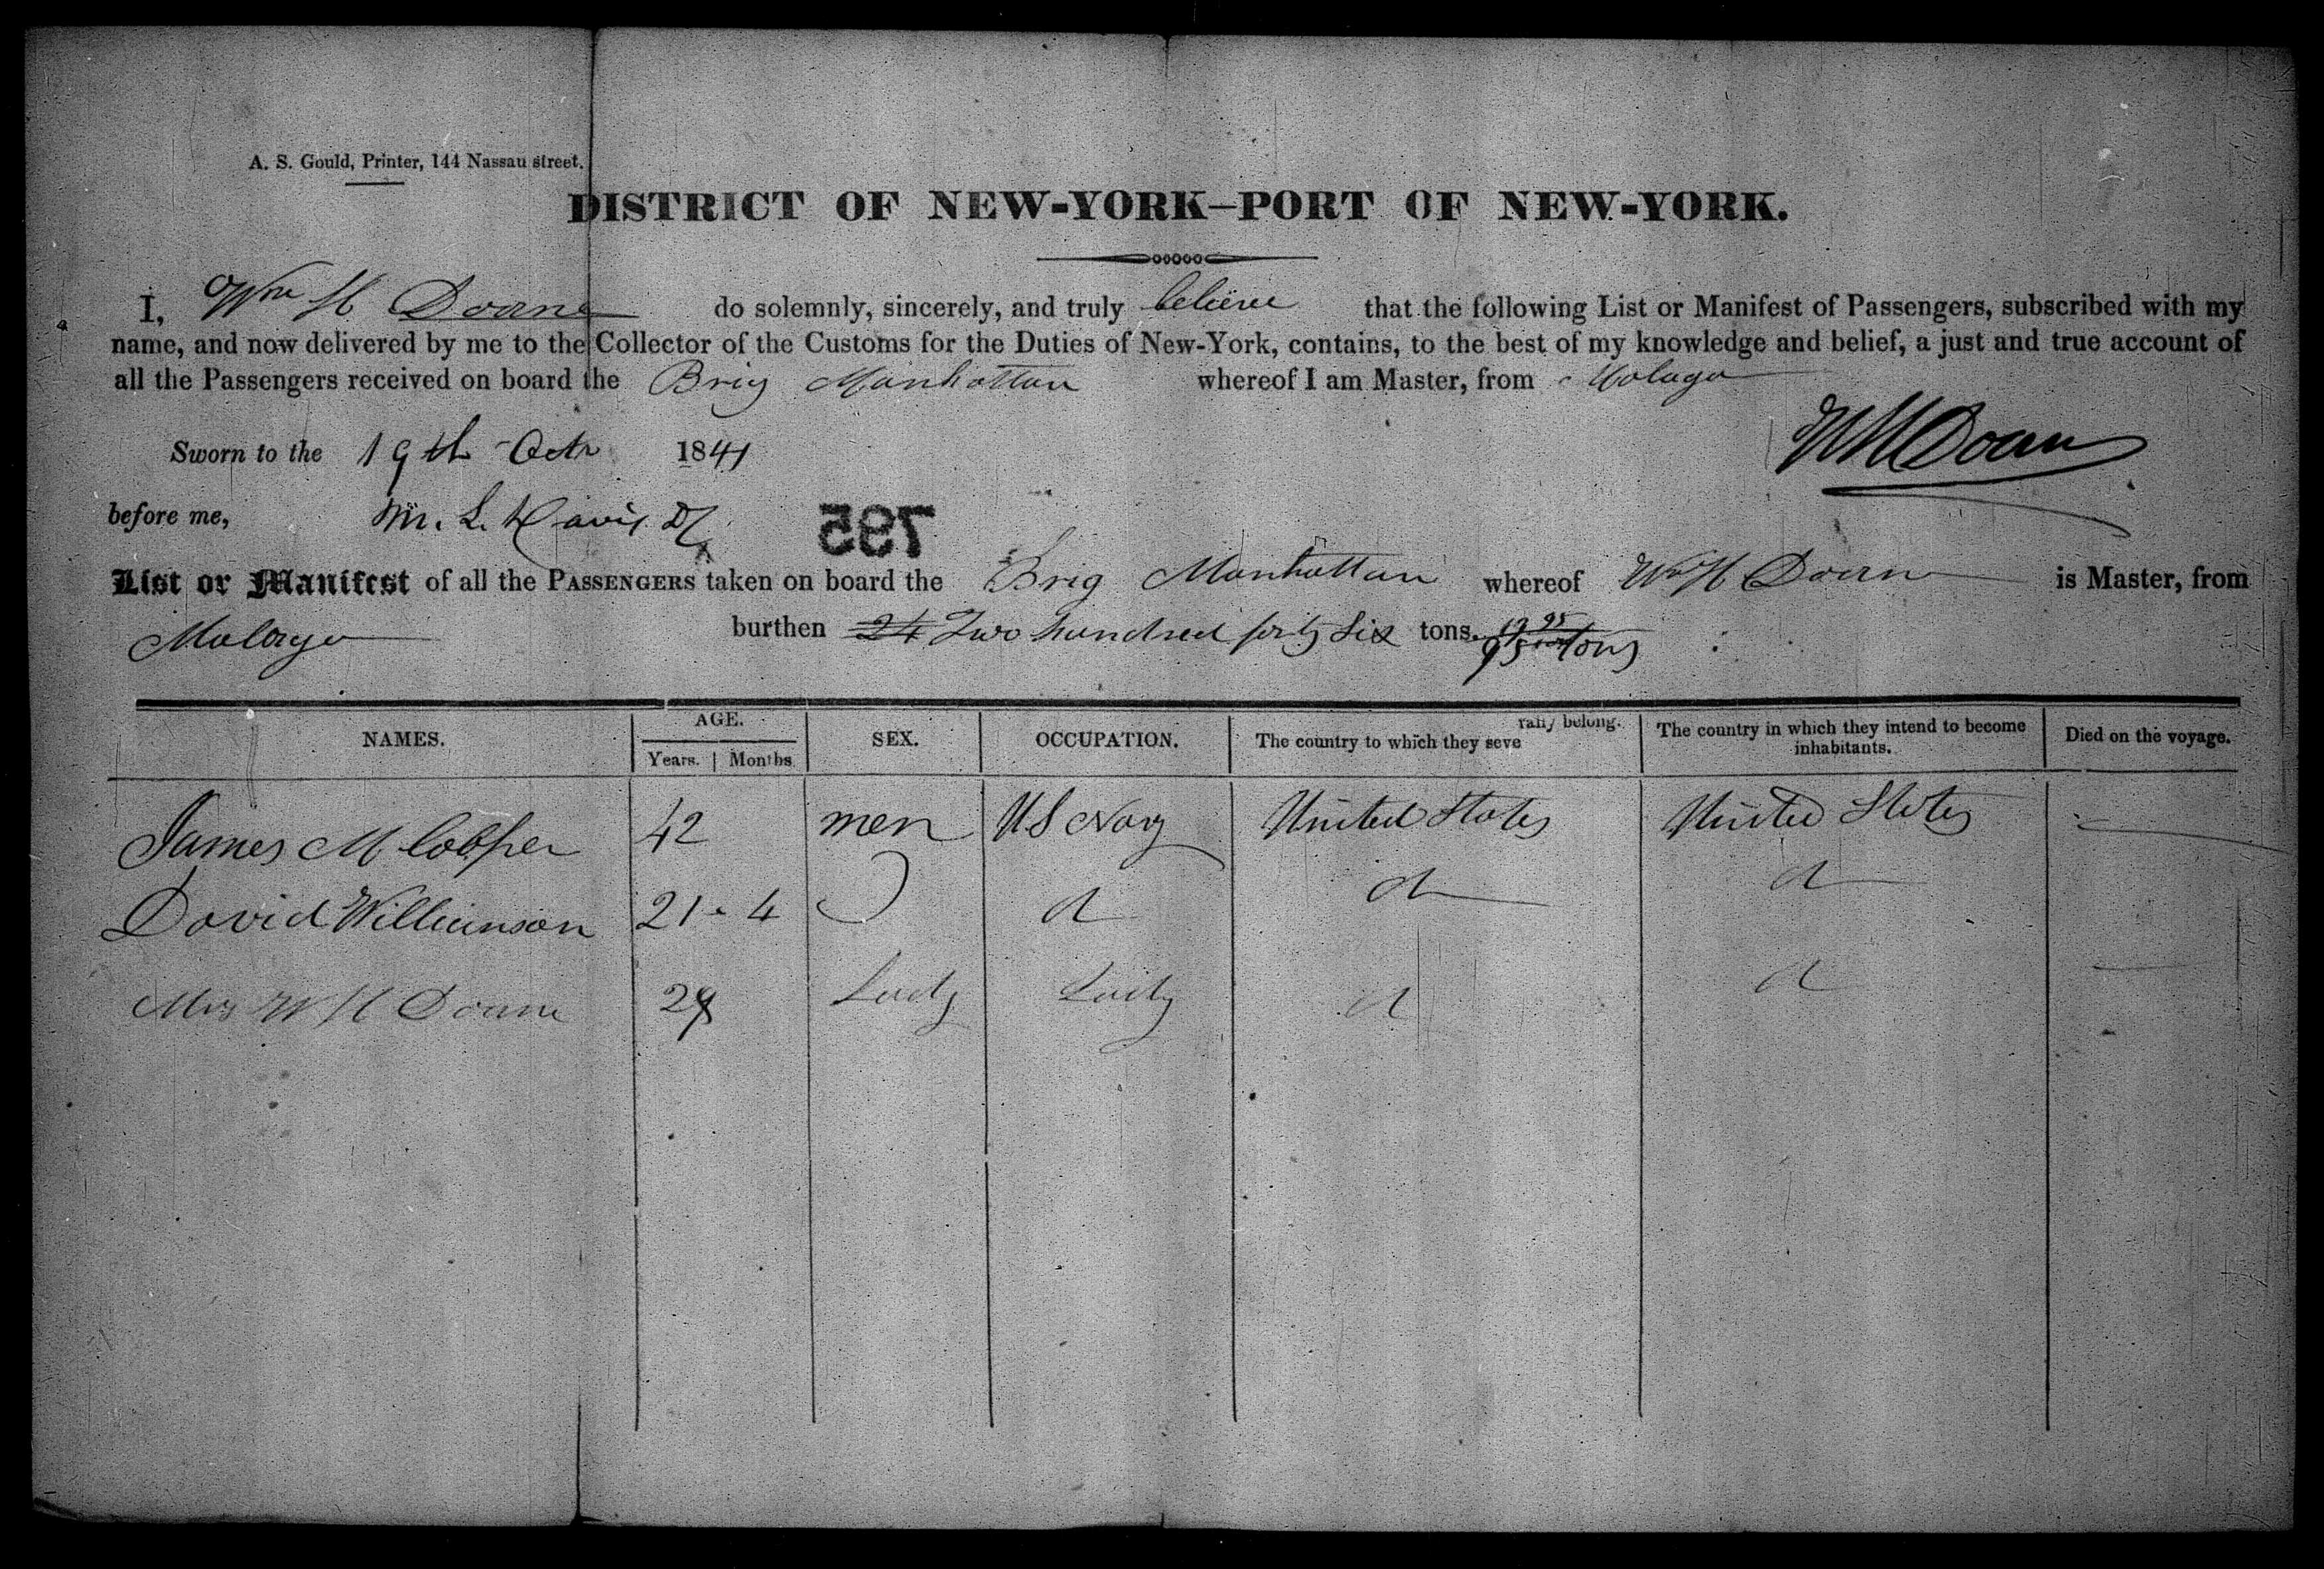 A. S. Gould, Printer, 144 Nassau street.
DISTRICT OF NEW-YORK—PORT OF NEW-YORK.
I, Wm H Doane do solemnly, sincerely, and truly believe that the following List or Manifest of Passengers, subscribed with my
name, and now delivered by me to the Collector of the Customs for the Duties of New-York, contains, to the best of my knowledge and belief, a just and true account of
all the Passengers received on board the Brig Manhattan whereof I am Master, from Malaga
Sworn to the 19th Octr 1841
W H Doane
before me, M. L. Davis
795
List or Manifest of all the PASSENGERS taken on board the Brig Manhattan whereof Wm H Doane is Master, from
Malaga burthen 24 Two hundred forty Six tons. 95 tons
NAMES. AGE. SEX. OCCUPATION. The country to which they seve rally belong. The country in which they intend to become inhabitants. Died on the voyage.
Years. Months
James M Cooper 42 men US Navy United States United States
David Williamson 21 - 4 d d d
Mrs W H Doane 29 Lady Lady d d